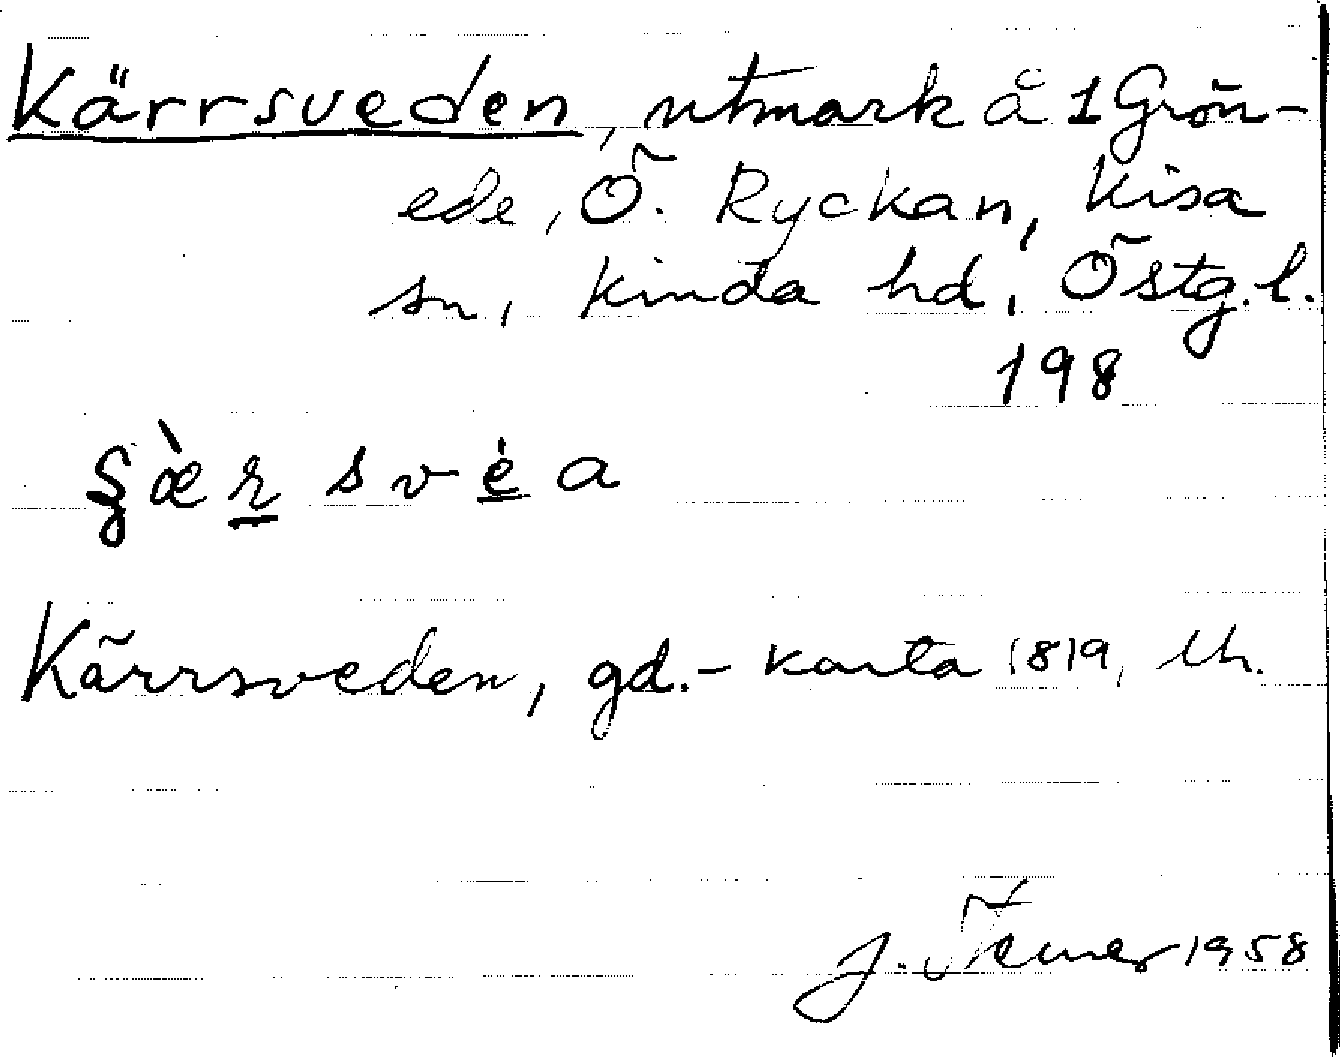 Kärrsveden, utmark å 1 Grön-
ede, Ö. Ryckan, Kisa
sn, Kinda hd, Östg.l.
198
s v e a
Kärrsveden, gd.-karta 1819, lh.
J. 1958